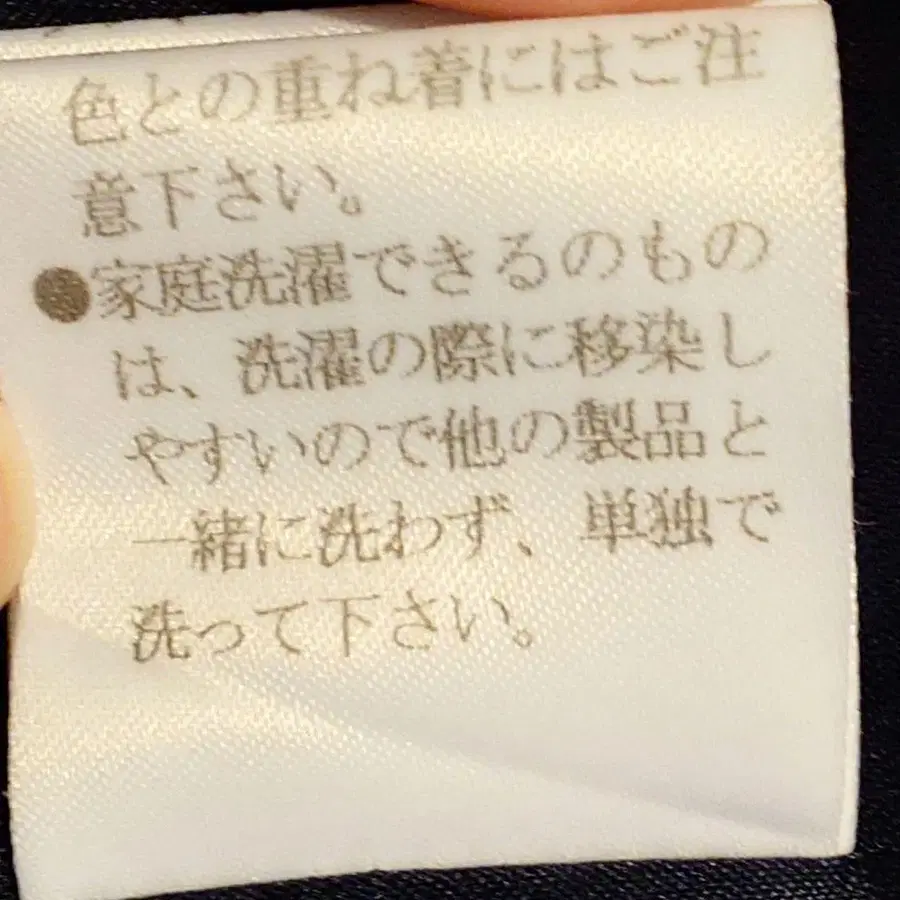 色との重ね着にはご注
意下さい。
●家庭洗濯できるのもの
は、洗濯の際に移染し
やすいので他の製品と
一緒に洗わず、単独で
洗って下さい。